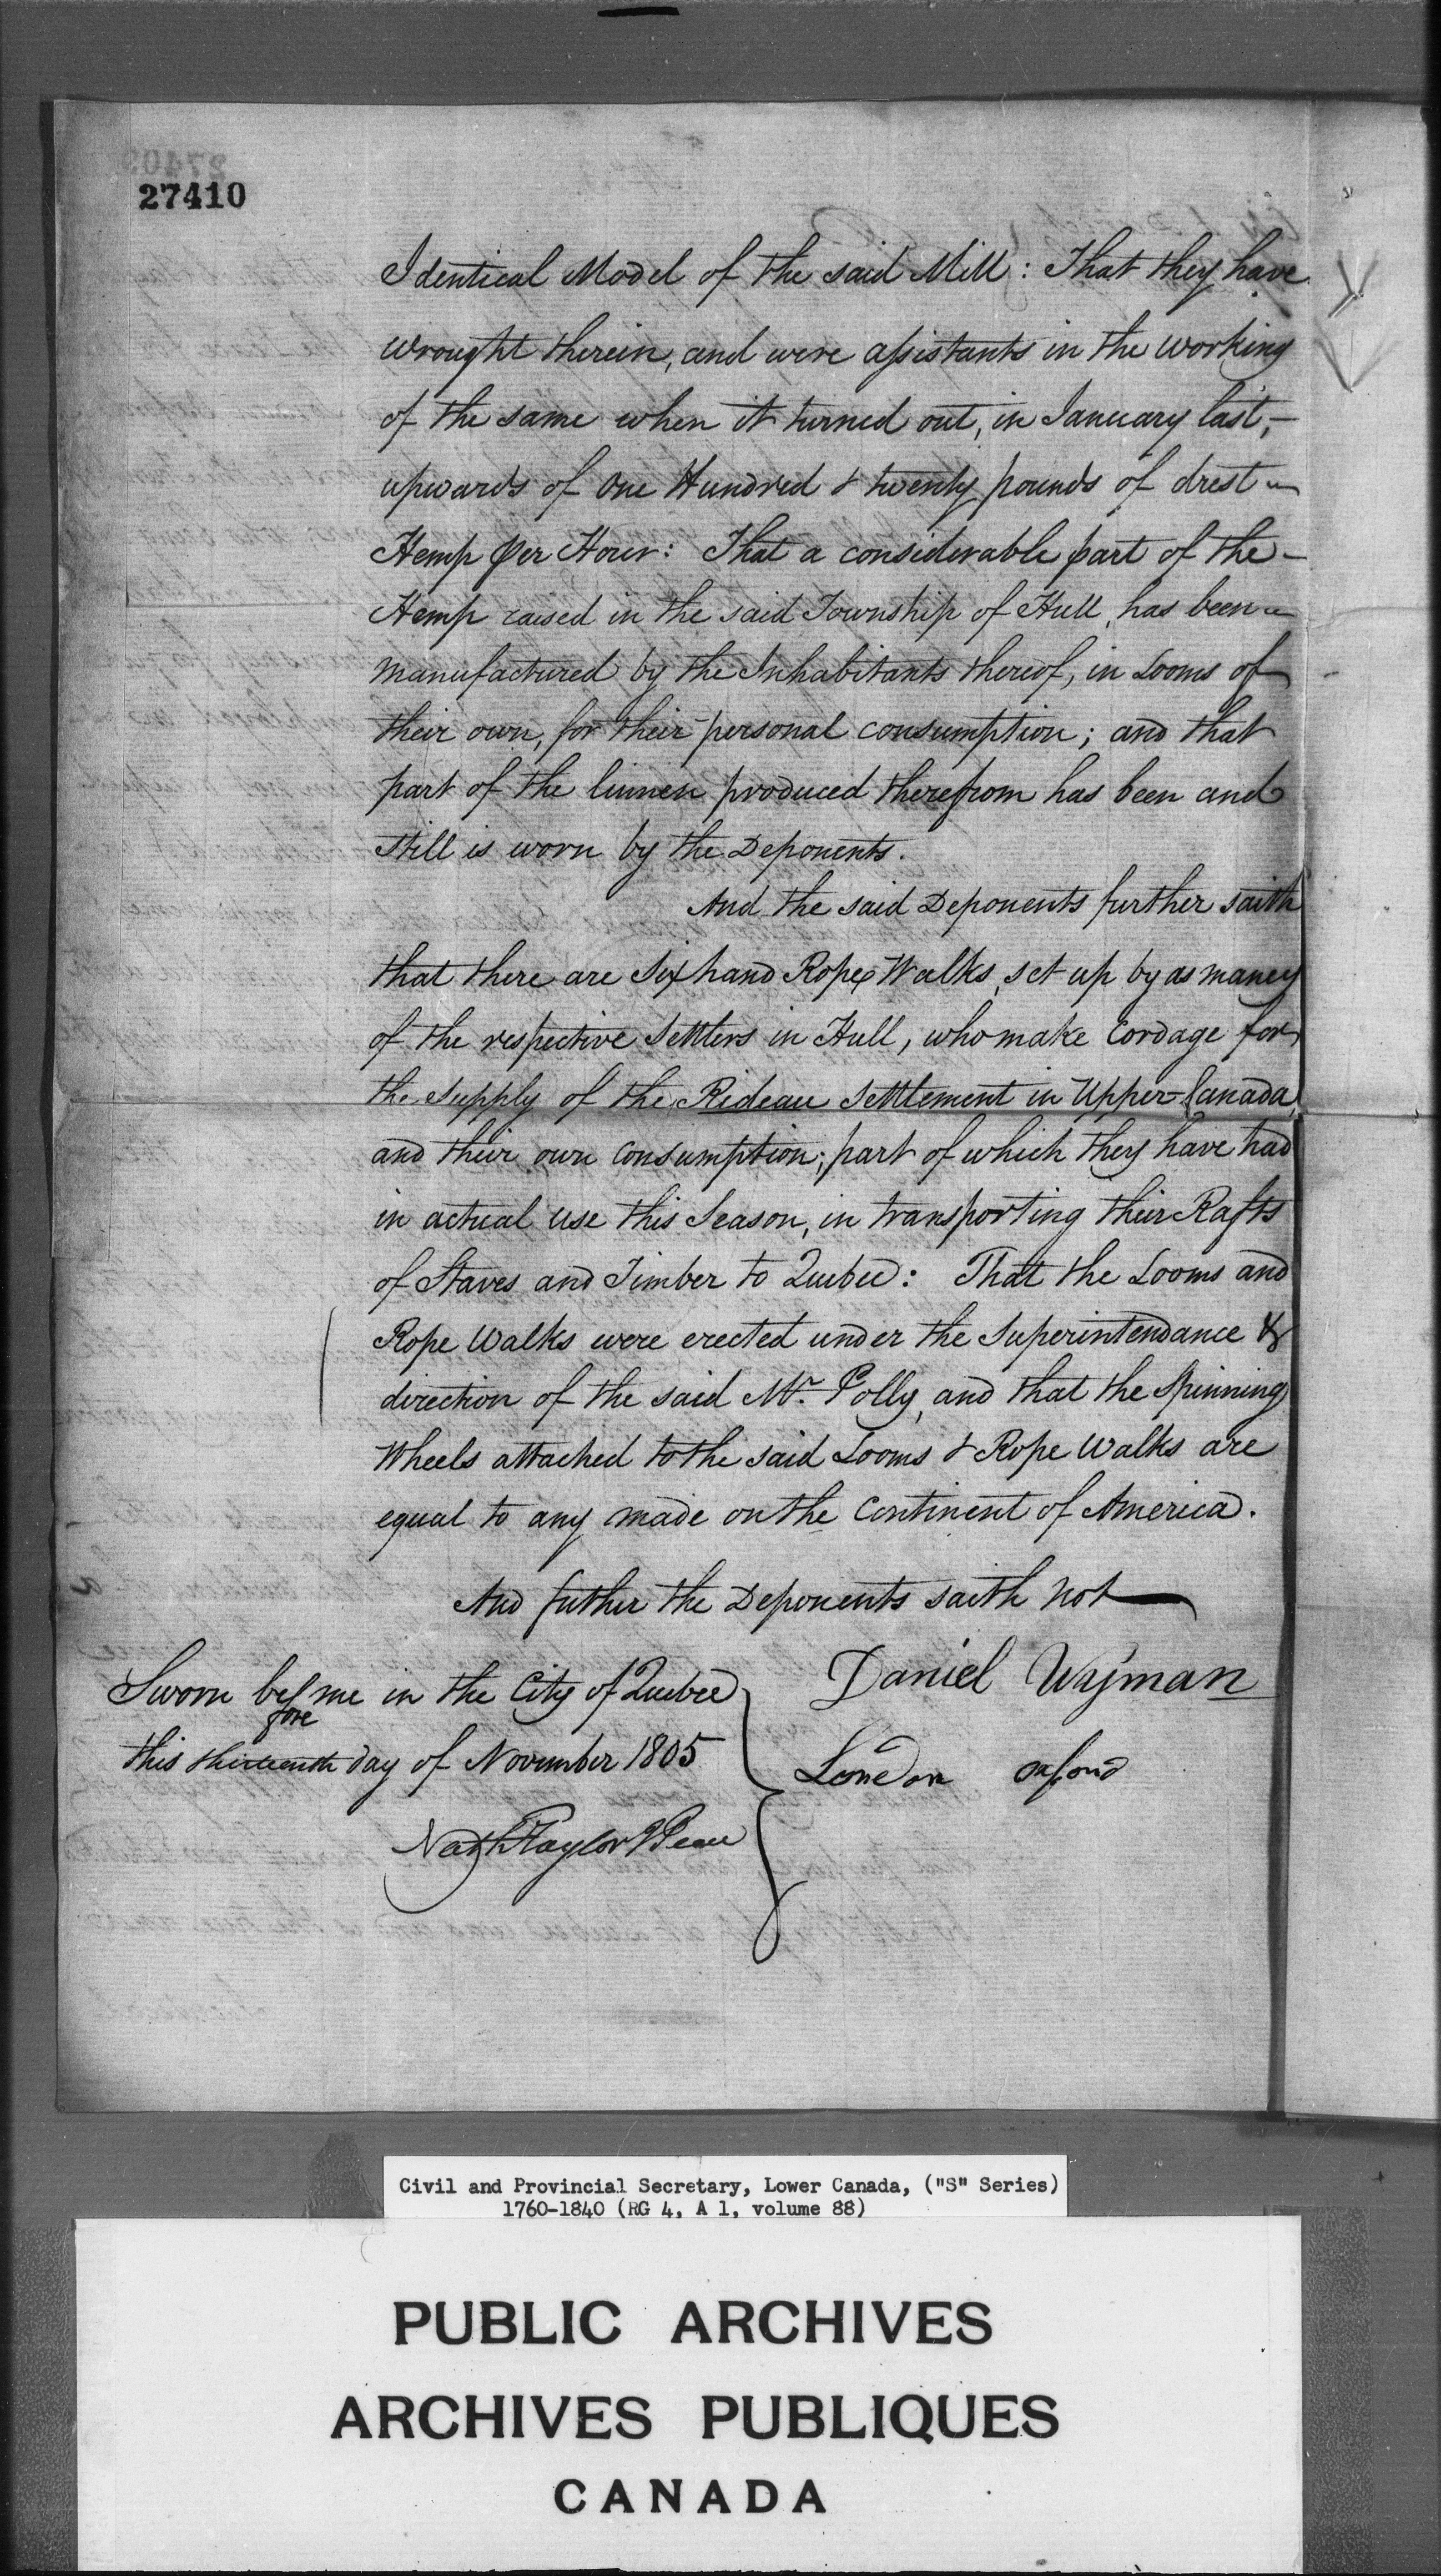 27410
Identical Model of the said Mill: That they have
wrought therein, and were assistants in the working
of the same when it turned out, in January last, -
upwards of One Hundred & twenty pounds of drest -
Hemp per Hour: That a considerable part of the -
Hemp raised in the said Township of Hull, has been -
manufactured by the Inhabitants thereof, in Looms of
their own, for their personal consumption; and that
part of the linnen produced therefrom has been and
still is worn by the Deponents.
And the said Deponents further saith
that there are Six hand Rope Walks, set up by as maney
of the respective Settlers in Hull, who make Cordage for
the Supply of the Rideau Settlement in Upper-Canada,
and their own consumption; part of which they have had
in actual use this Season, in transporting their Rafts
of Staves and Timber to Quebec: That the Looms and
Rope Walks were erected under the Superintendance &
direction of the said Mr. Polly, and that the Spinning
Wheels attached to the said Looms & Rope Walks are
equal to any made on the Continent of America.
And futher the Deponents saith not
Sworn before me in the City of Quebec
this thirteenth day of November 1805
Daniel Wyman
London oxford
Nath Taylor J Peace
Civil and Provincial Secretary, Lower Canada, ("S" Series)
1760-1840 (RG 4, A 1, volume 88)
PUBLIC ARCHIVES
ARCHIVES PUBLIQUES
CANADA